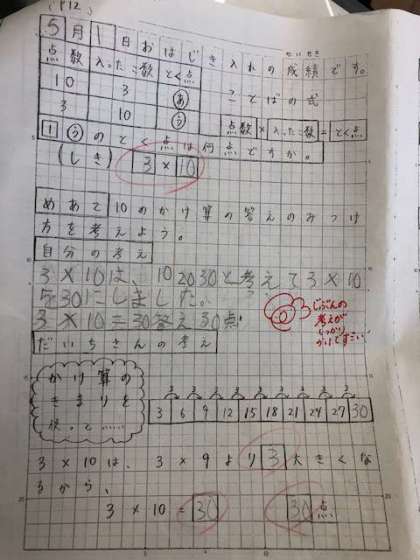 (P12)
5月1日おはじき入れの成績です。
せいせき
点数 入った数 とく点
10 3 あ
3 10 う
ことばの式
点数×入った数=とく点
1 うのとく点は何点ですか。
(しき) 3×10
めあて 10のかけ算の答えのみつけ
方を考えよう。
自分の考え
3×10は、10 20 30と考えて3×10
を30にしました。
3×10=30答え30点
じぶんの
考えが
しっかり
かけてすごい
だいちさんの考え
かけ算の
きまりを
使って……
3 3 3 3 3 3 3 3 3
3 6 9 12 15 18 21 24 27 30
3×10は、3×9より3大きくな
るから、
3×10=30 30点